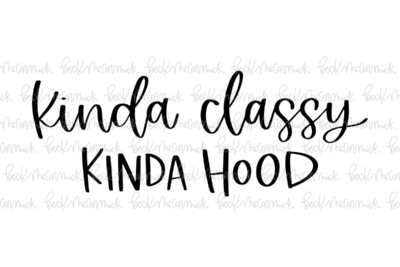 kinda classy
KINDA HOOD